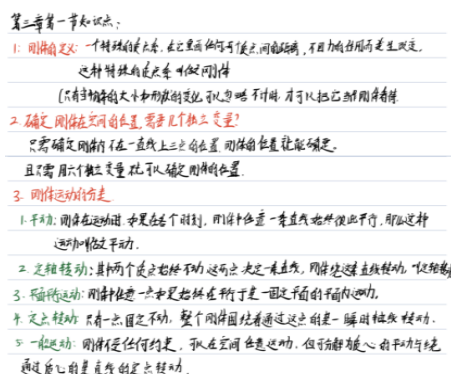 第三章第一节知识点：
1. 刚体的定义：一个特殊的质点系，在它里面任何两个质点间的距离，不因力的作用而发生改变，
这种特殊的质点系叫做刚体
（只有当物体的大小和形状的变化可以忽略不计时，才可以把它当刚体看待
2. 确定刚体在空间的位置，需要几个独立变量？
只需确定刚体内不在一直线上三点的位置，刚体的位置就能确定。
且只需用六个独立变量就可以确定刚体的位置
3. 刚体运动的分类
1. 平动：刚体在运动时，如果在各个时刻，刚体中任意一条直线始终彼此平行，那么这种
运动叫做平动．
2. 定轴转动：其中两个质点始终不动，这两点决定一条直线，刚体绕这条直线转动，
3. 平面平行运动：刚体中任意一点如果始终在平行于某一固定平面的平面内运动。
4. 定点转动：只有一点固定不动，整个刚体围绕着通过这点的某一瞬时轴线转动．
5. 一般运动：刚体不受任何约束，可以在空间任意运动，但可分解为质心的平动与绕
通过质心的某直线的定点转动．